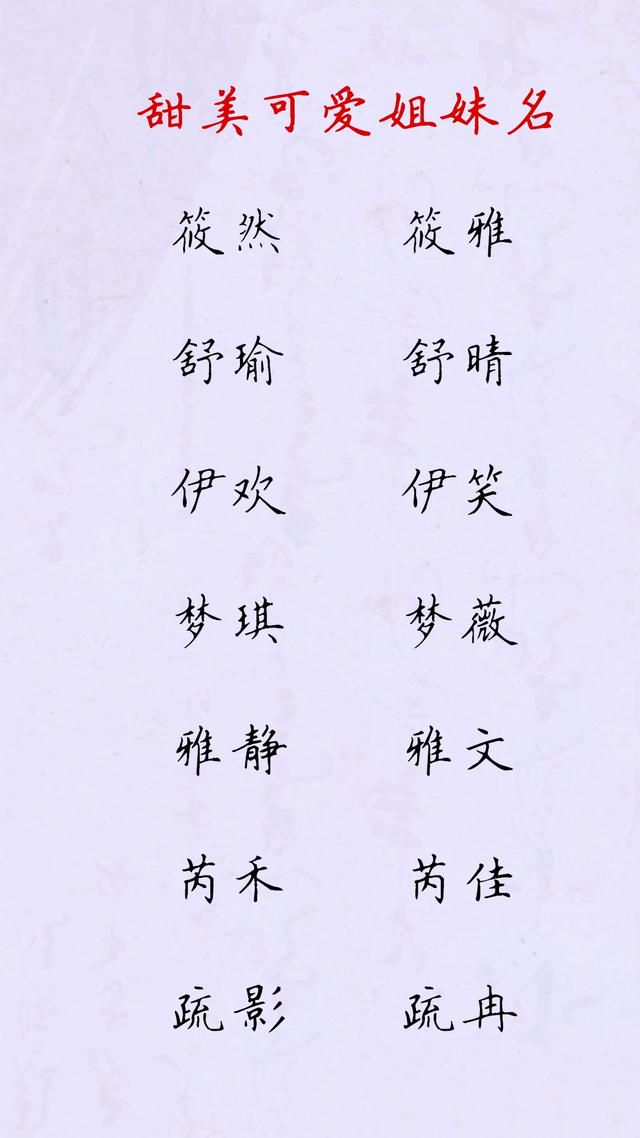 甜美可爱姐妹名
筱然 筱雅
舒瑜 舒晴
伊欢 伊笑
梦琪 梦薇
雅静 雅文
芮禾 芮佳
疏影 疏冉